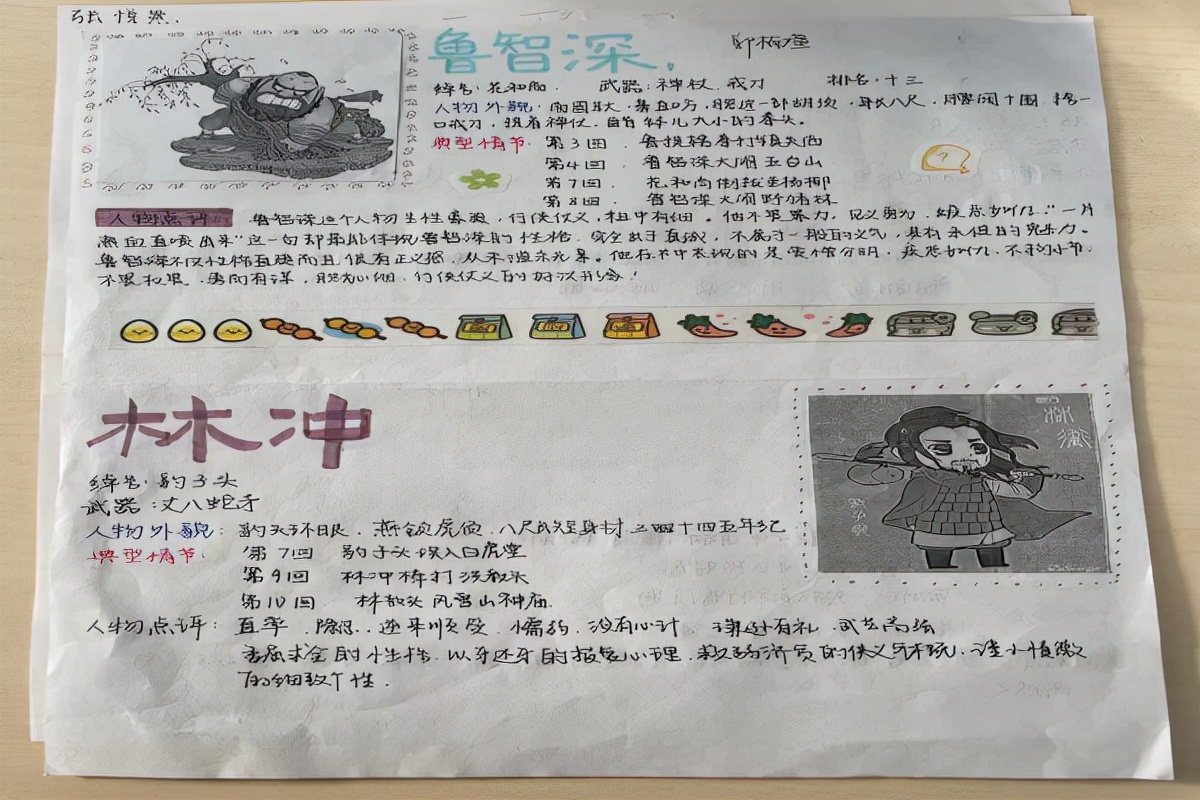 张
鲁智深.
绰号:花和尚. 武器:禅杖.戒刀 排名:十三
人物外貌:面圆耳大.鼻直口方.腮边一部胡须.身长八尺.腰阔十围 挎一
口戒刀.提着禅仗.
典型情节: 第3回. 鲁提辖拳打镇关西
第4回. 鲁智深大闹五台山
第7回. 花和尚倒拔垂杨柳
第8回. 鲁智深大闹野猪林
人物点评 鲁智深这个人物生性豪爽,行侠仗义,粗中有细。他不畏暴力,见义勇为.嫉恶如仇."一片
热血直喷出来"这一句却最能体现鲁智深的性格.完全出于真诚,不属于一般的义气,具有永恒的
鲁智深不仅性格直爽而且很有正义感,从不 的是爱憎分明.疾恶如仇.不拘小节.
不畏权贵.勇而有谋,胆大心细.行侠仗义的好汉形象!
林冲
绰号:豹子头
武器:丈八蛇矛
人物外貌: 豹头环眼.燕颔虎须.八尺长短身材.三四十四五年纪
典型情节: 第7回 豹子头误入白虎堂
第9回 林冲棒打洪教头
第10回 林教头风雪山神庙.
人物点评: 直率. 逆来顺受.懦弱.没有心计 谦逊有礼.武艺高强
委屈求全的性格.以牙还牙的报复心理. 的侠义 .谨小慎微
的细致个性.